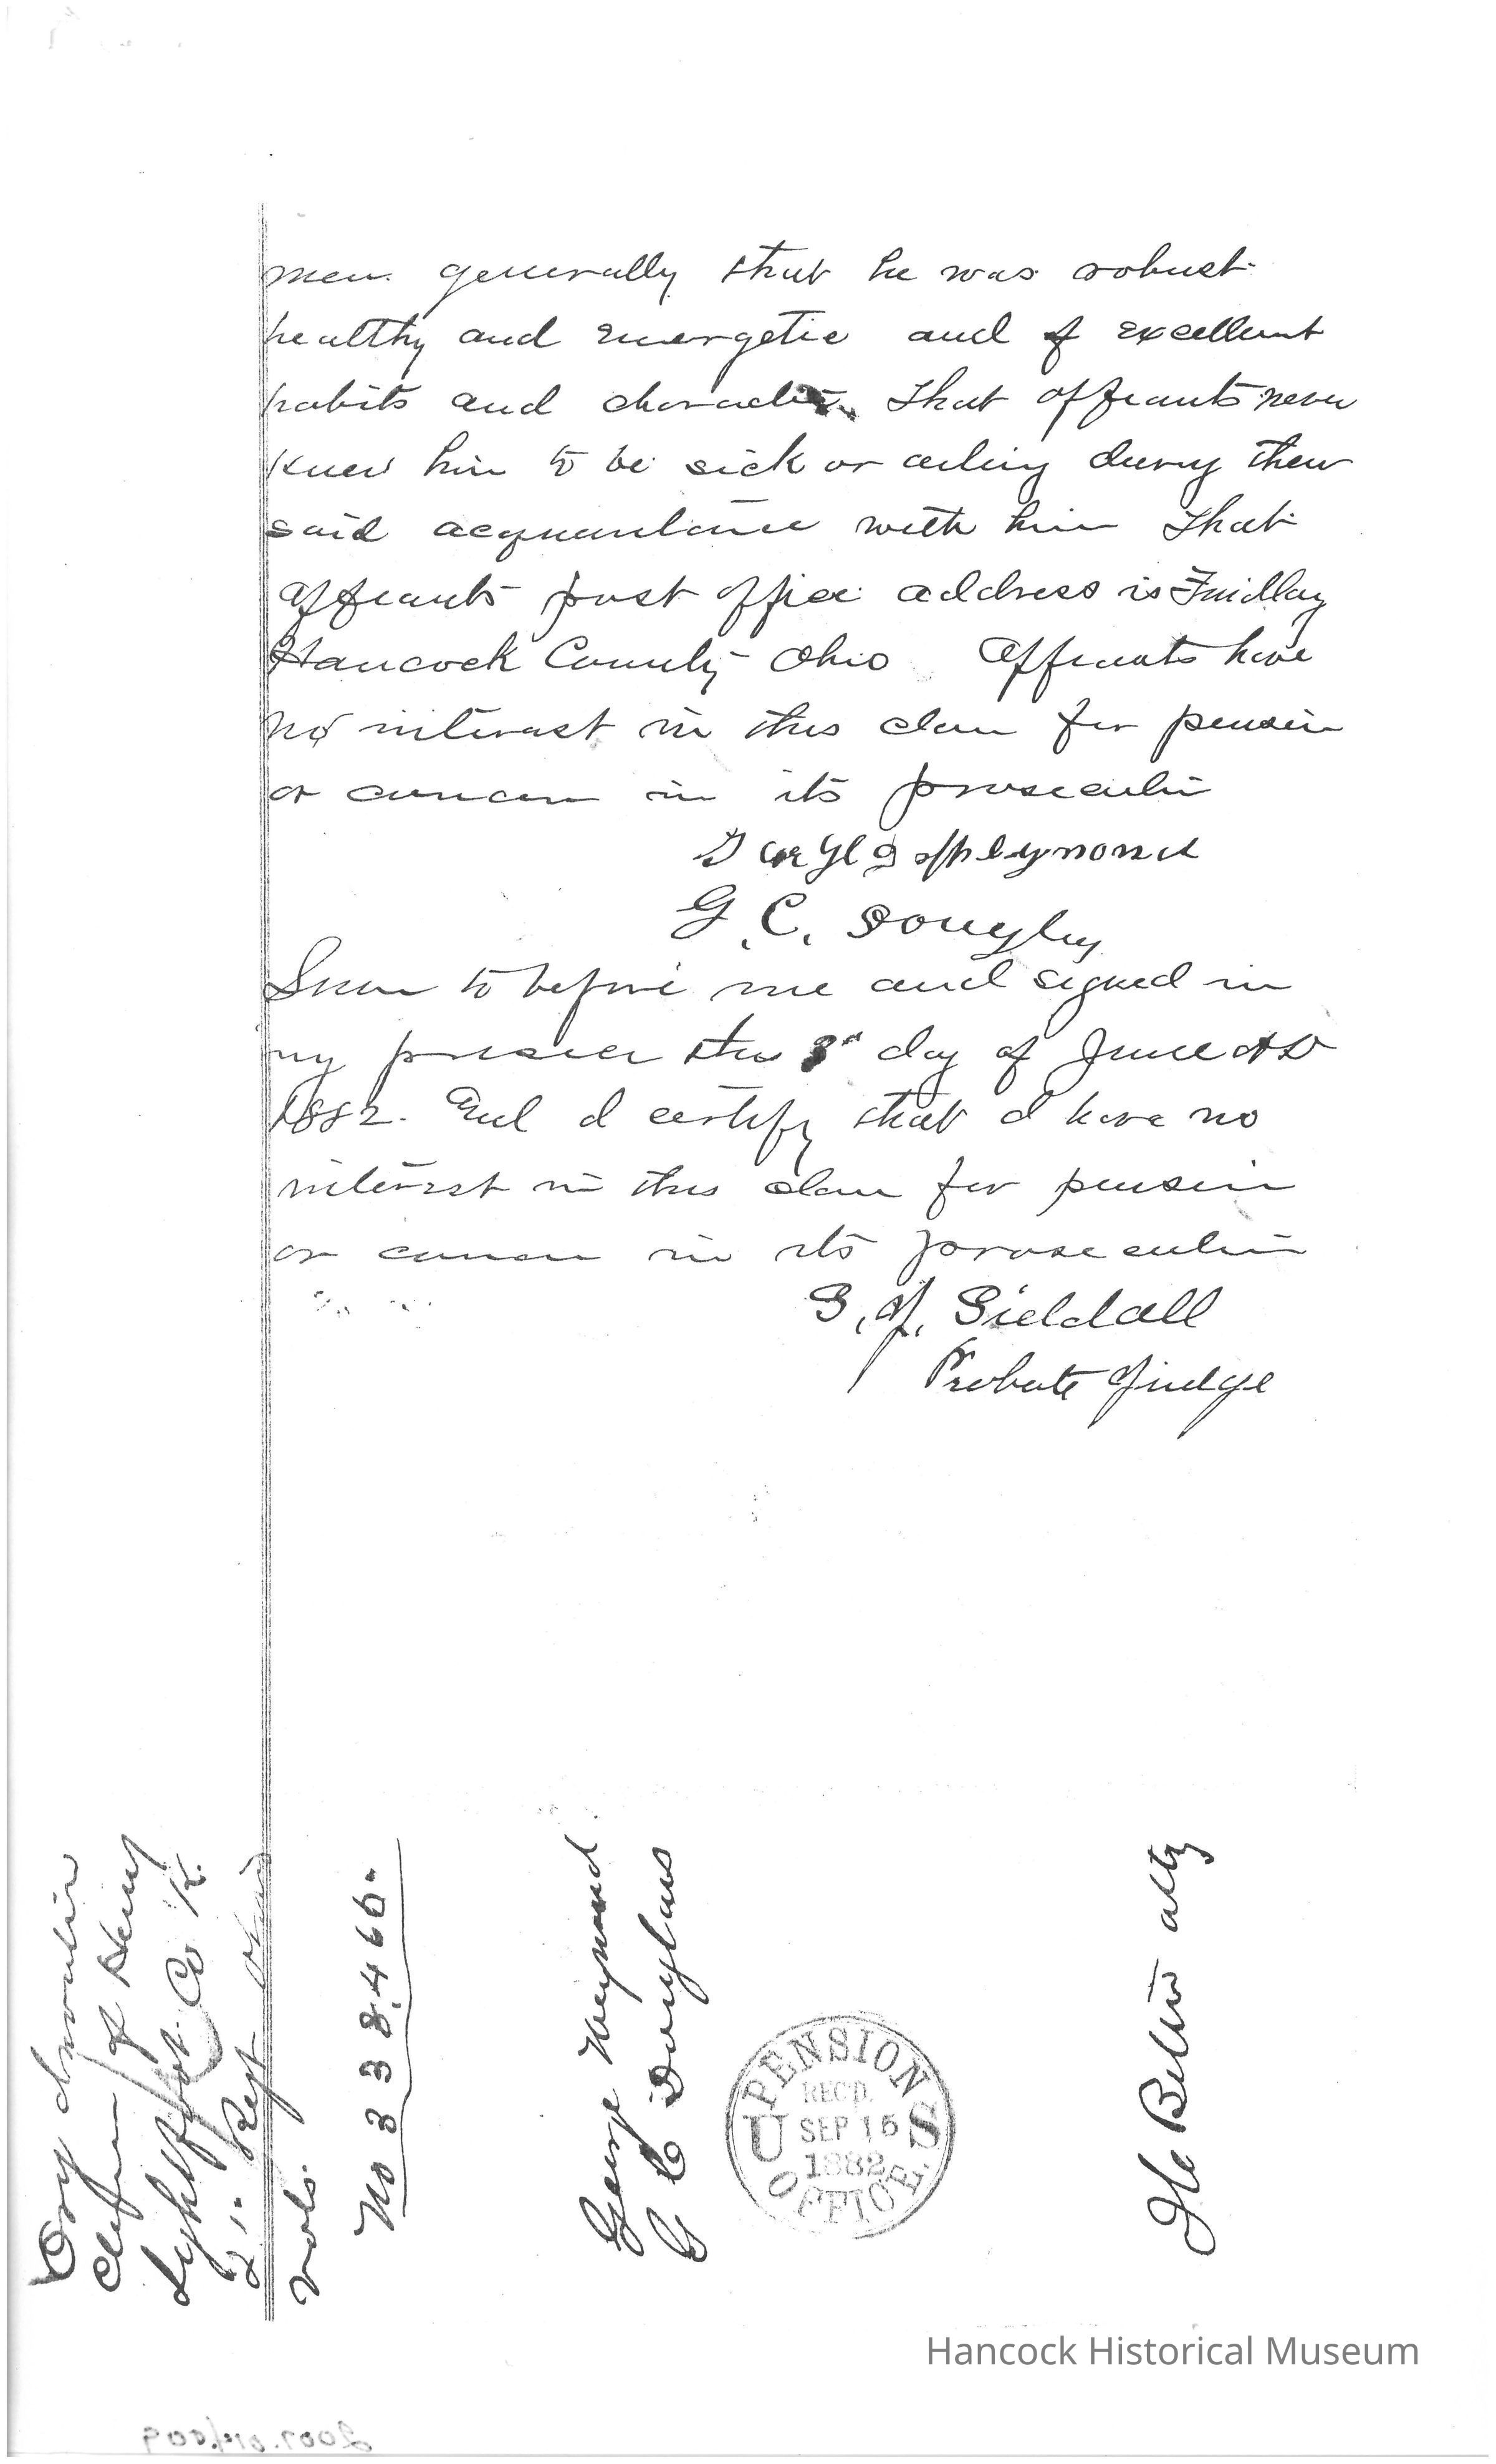 men generally that he was robust
healthy and energetic and of excellent
habits and character That affiants never
knew him to be sick or ailing during their
said acquaintance with him That
affiants post office address is Findlay
Hancock County Ohio Affiants have
no interest in this claim for pension
or concern in its prosecution
G. C. Douglas
Sworn to before me and signed in
my presence this 3rd day of June AD
1882. And I certify that I have no
interest in this claim for pension
or concern in its prosecution
S. J. Siddall
Probate Judge
of Henry
Lightfoot Co K.
21. Regt Ohio
Vols.
No 338.466.
George Weymond
G C Douglass
U S PENSION OFFICE
REC'D.
SEP 15
1882
Atty
Hancock Historical Museum
2007.014.009